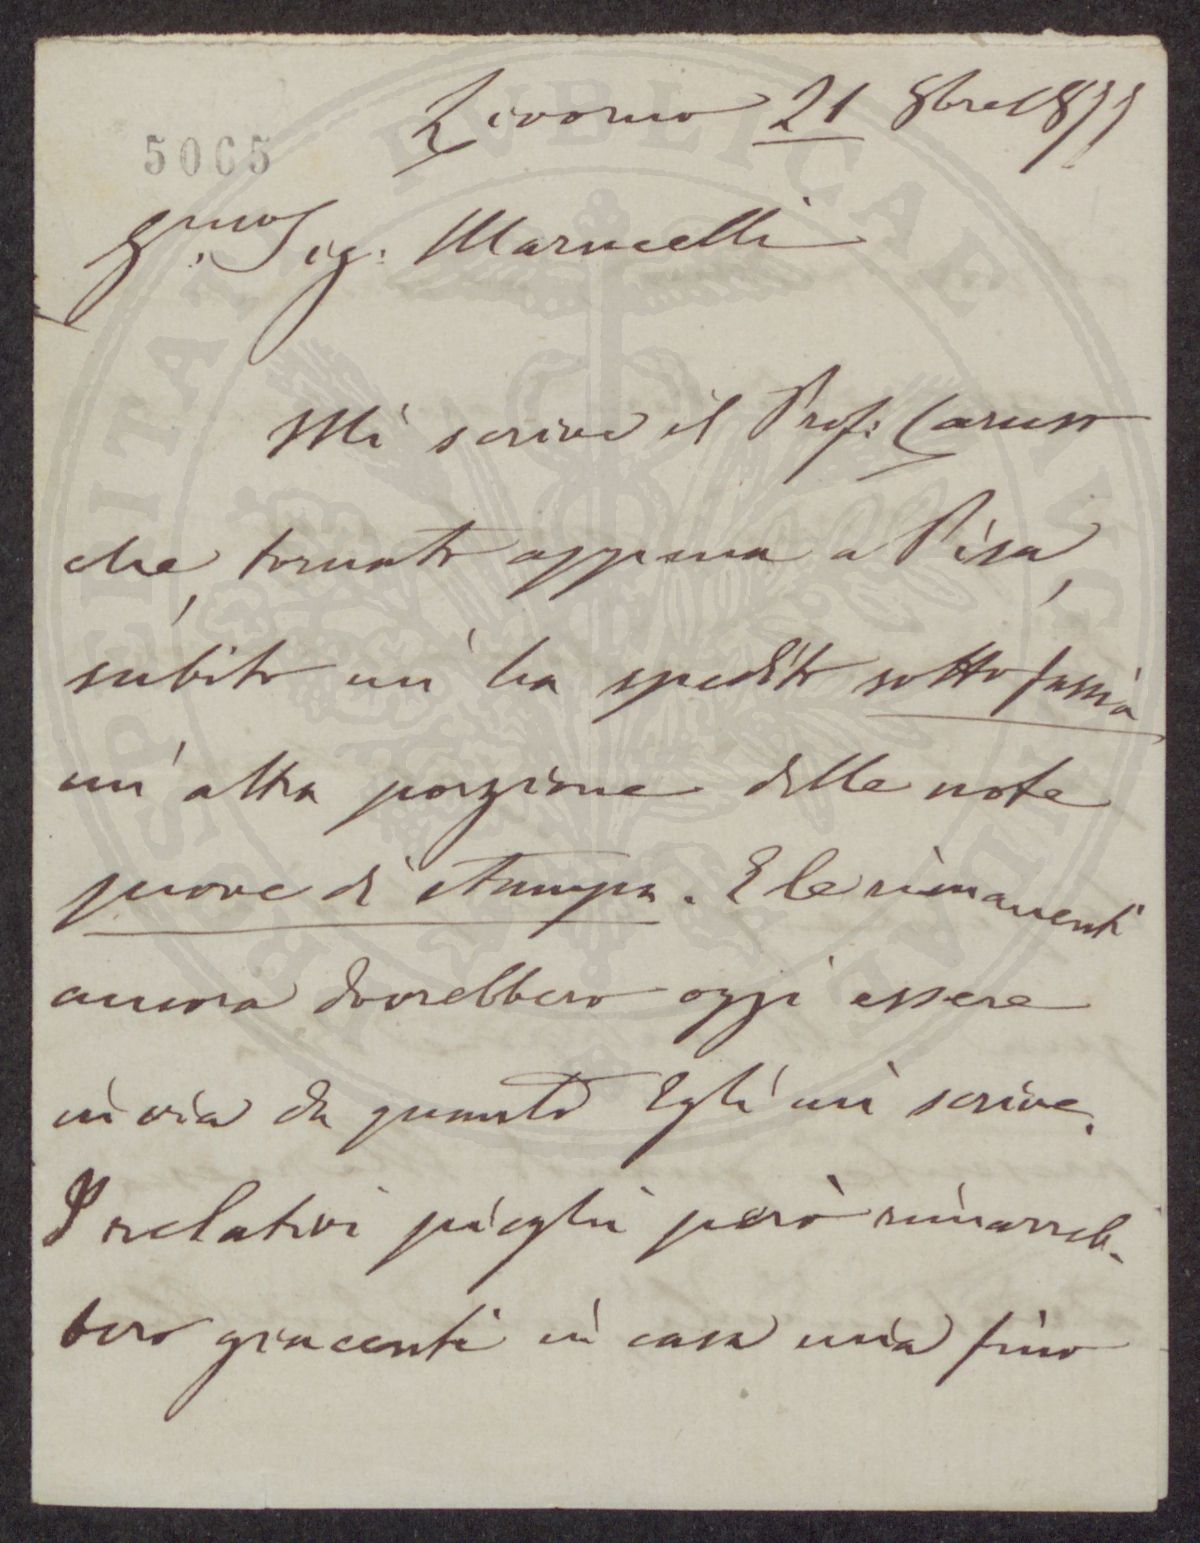 5065
Livorno 21 8bre 1877
Sig: Marucelli
Mi scrive il Prof: Caruso
che, tornato appena a Pisa,
subito mi ha spedito sotto fascia
un'altra porzione delle note
prove di stampa. E le rimanenti
ancora dovrebbero oggi essere
in via da quanto Egli mi scrive.
I relativi pieghi però rimarreb-
bero giacenti in casa mia fino